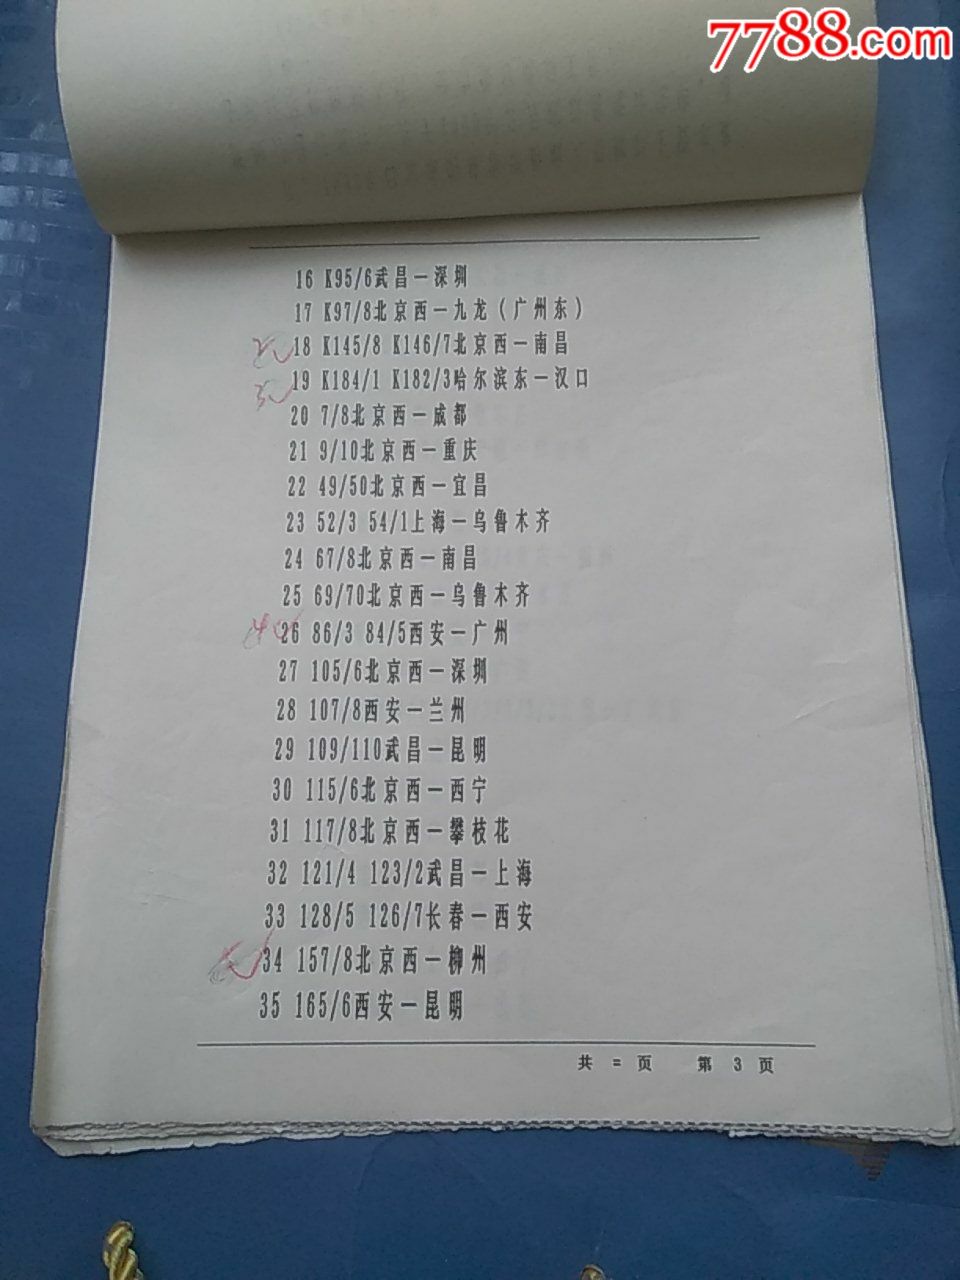 7788.com
16 K95/6武昌一深圳
17 K97/8北京西一九龙(广州东)
18 K145/8 K146/7北京西一南昌
19 K184/1 K182/3哈尔滨东一汉口
20 7/8北京西一成都
21 9/10北京西一重庆
22 49/50北京西一宜昌
23 52/3 54/1上海一乌鲁木齐
24 67/8北京西一南昌
25 69/70北京西一乌鲁木齐
26 86/3 84/5西安一广州
27 105/6北京西一深圳
28 107/8西安一兰州
29 109/110武昌一昆明
30 115/6北京西一西宁
31 117/8北京西一攀枝花
32 121/4 123/2武昌一上海
33 128/5 126/7长春一西安
34 157/8北京西一柳州
35 165/6西安一昆明
共 = 页 第 3 页